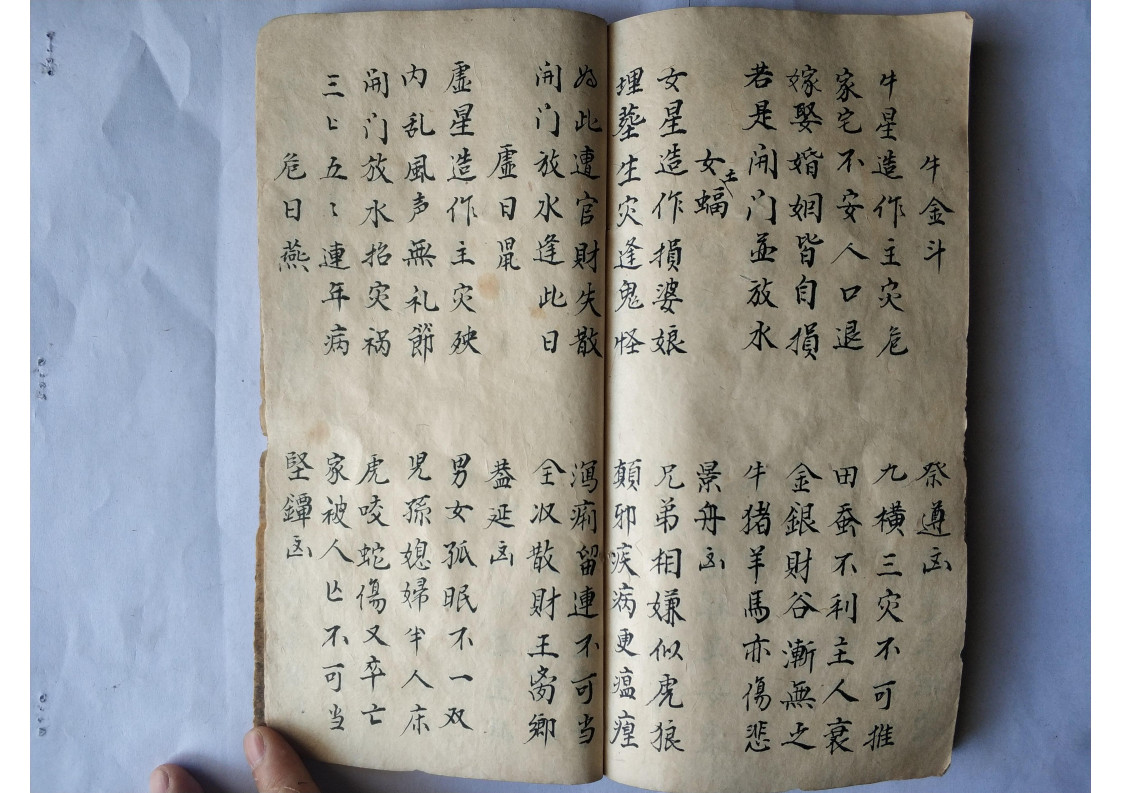 牛金斗 祭遵凶
牛星造作主灾危 九横三灾不可推
家宅不安人口退 田蚕不利主人衰
嫁娶婚姻皆自損 金銀財谷漸無之
若是開门並放水 牛猪羊馬亦傷悲
女土蝠 景舟凶
女星造作損婆娘 兄弟相嫌似虎狼
埋塟生灾逢鬼怪 顛邪疾病更瘟瘽
为此遭官財失散 瀉痢留連不可当
開门放水逢此日 全㳄散財王离鄉
虚日鼠 盖延凶
虚星造作主灾殃 男女孤眠不一双
内乱風声無礼節 児孫媳婦半人床
開门放水招灾祸 虎咬蛇傷又卒亡
三ヒ五ミ連年病 家被人亡不可当
危日燕 堅鐔凶